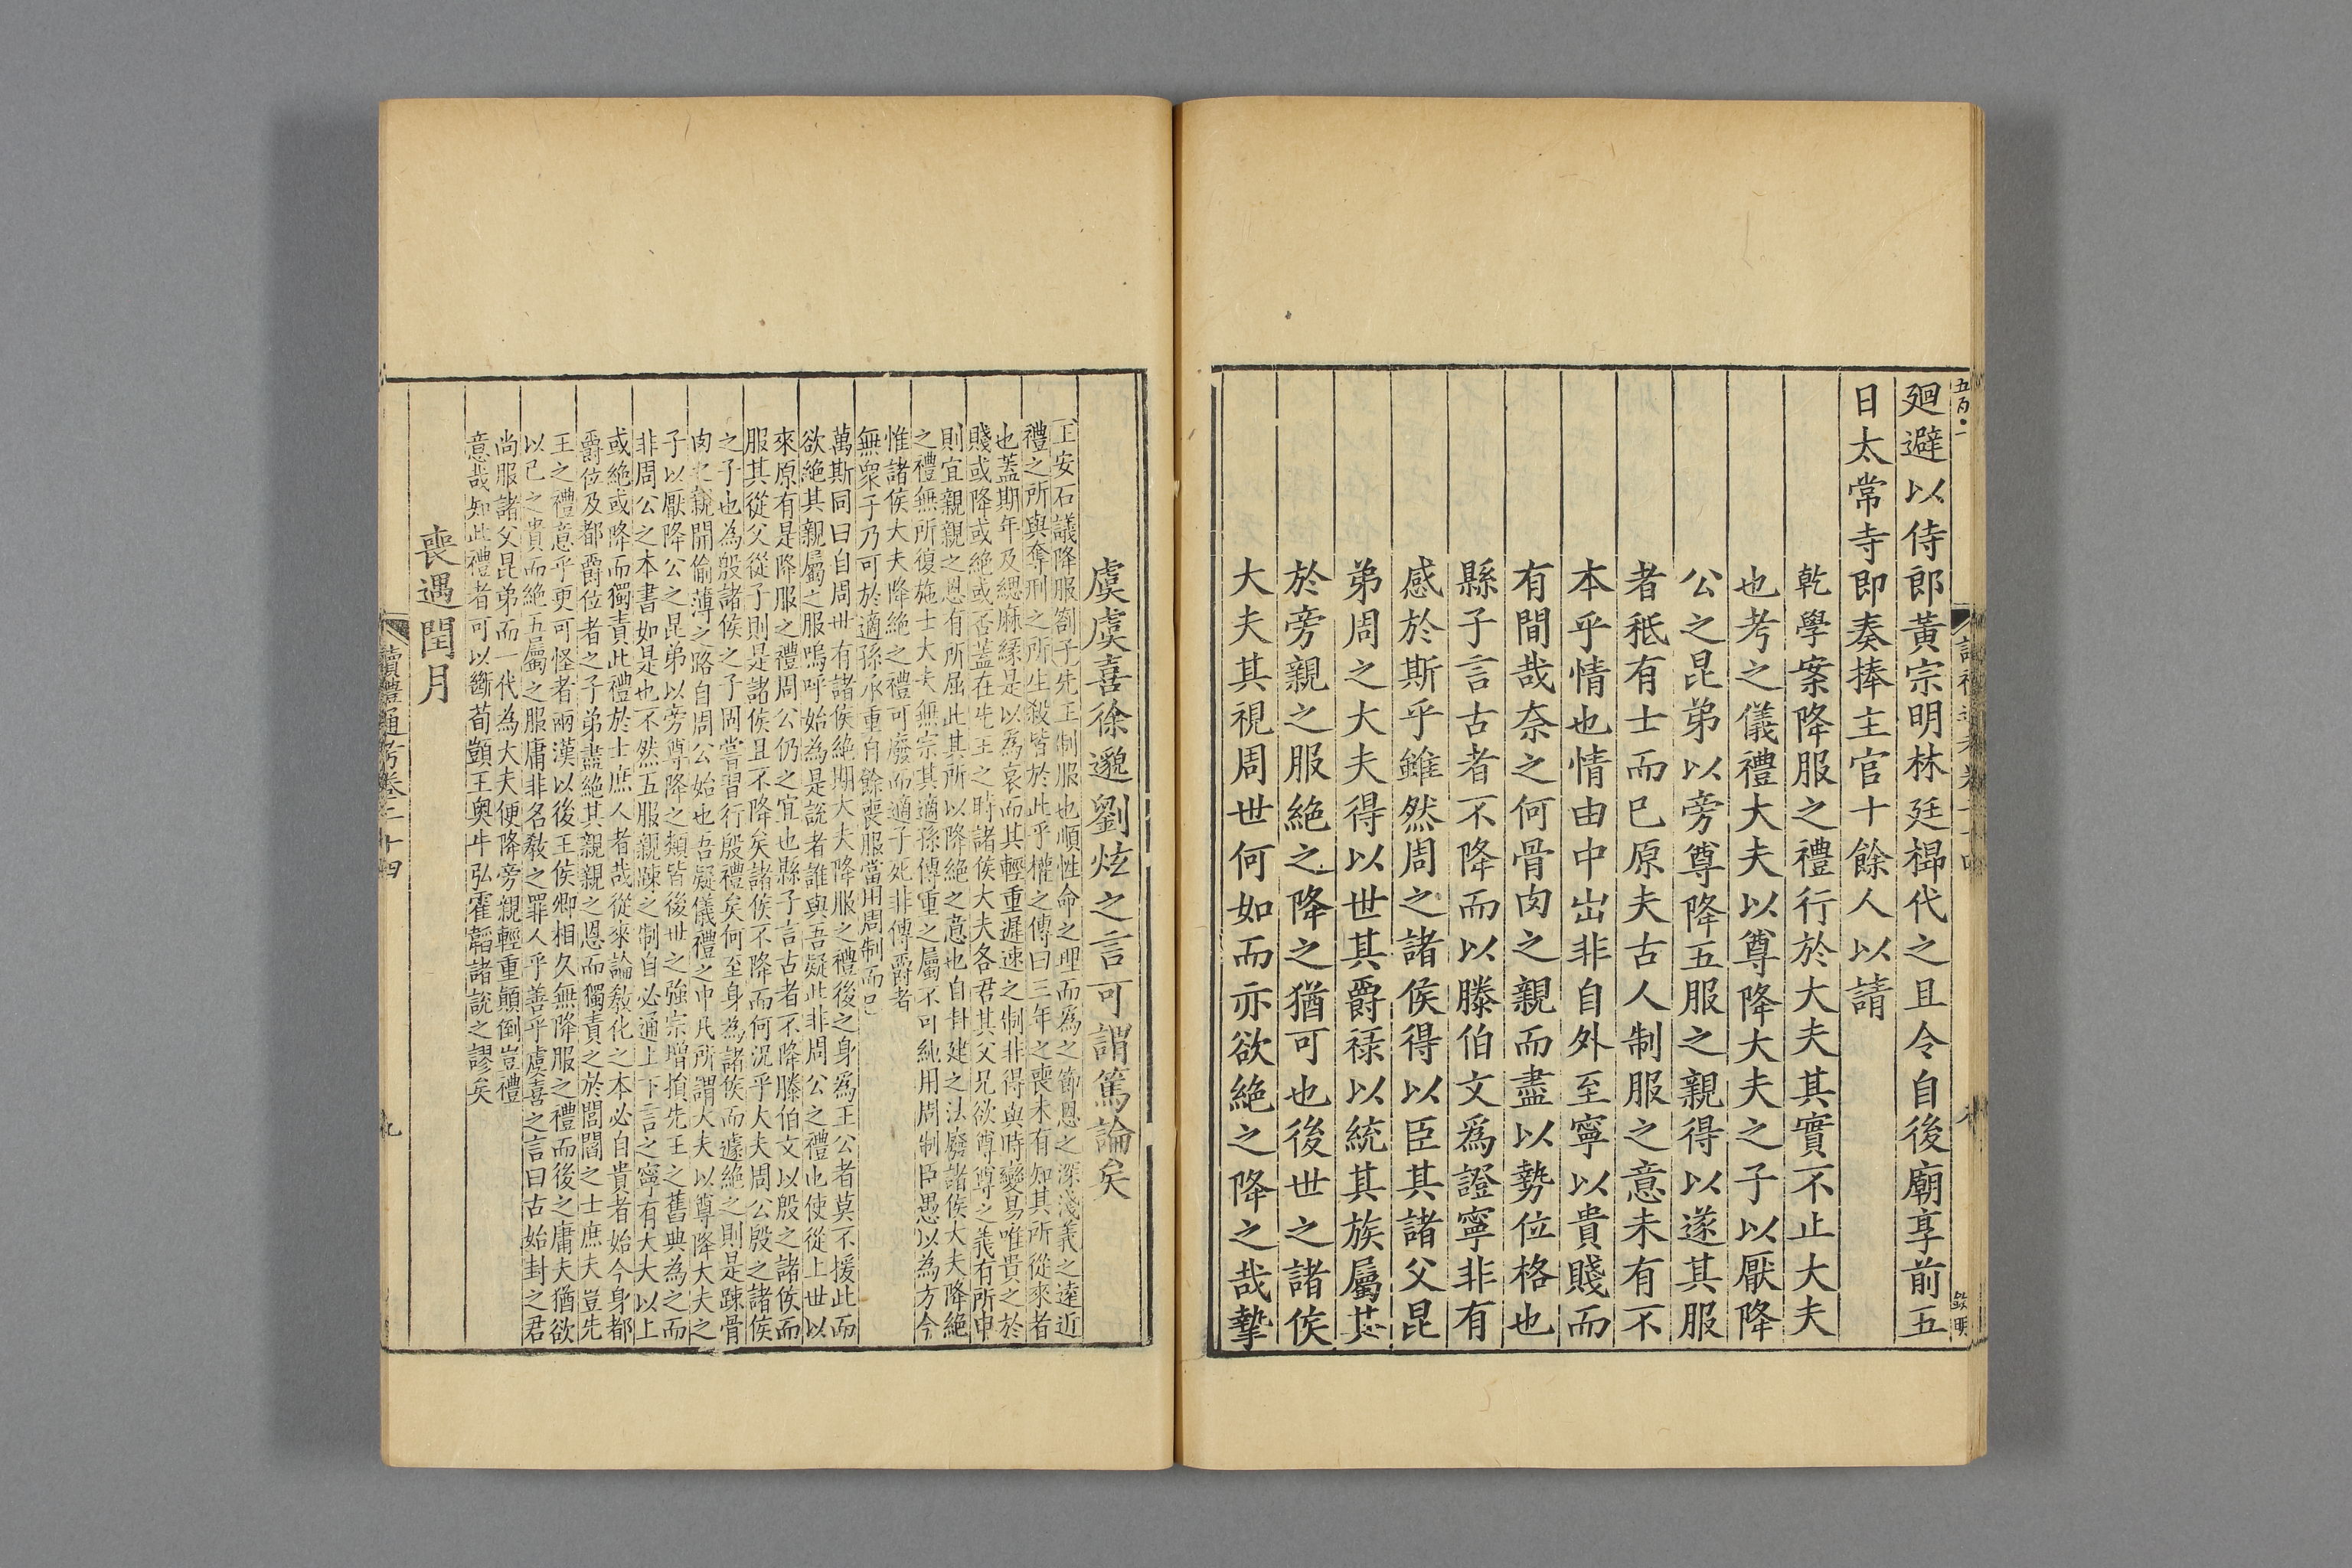 五百·一
廻避以侍郎黃宗明林廷㭿代之且令自後廟享前五
日太常寺即奏捧主官十餘人以請
乾學案降服之禮行於大夫其實不止大夫
也考之儀禮大夫以尊降大夫之子以厭降
公之昆弟以旁尊降五服之親得以遂其服
者秪有士而已原夫古人制服之意未有不
本乎情也情由中出非自外至寧以貴賤而
有間哉奈之何骨肉之親而盡以勢位格也
縣子言古者不降而以滕伯文爲證寧非有
感於斯乎雖然周之諸侯得以臣其諸父昆
弟周之大夫得以世其爵祿以統其族屬其
於旁親之服絶之降之猶可也後世之諸侯
大夫其視周世何如而亦欲絶之降之哉摯
虞虞喜徐邈劉炫之言可謂篤論矣
王安石議降服劄子先王制服也順性命之理而為之節恩之深淺義之遠近
禮之所與奪刑之所生殺皆於此乎權之傳曰三年之喪未有知其所從來者
也蓋期年及緦麻緣是以為哀而其輕重遲速之制非得與時變易唯貴之於
賤或降或絶或否蓋在先王之時諸侯大夫各君其父兄欲尊尊之義有所申
則宜親親之恩有所屈此其所以降絶之意也自封建之法廢諸侯大夫降絶
之禮無所復施士大夫無宗其適孫傳重之屬不可純用周制臣愚以為方今
惟諸侯大夫降絶之禮可廢而適子死非傳爵者
無衆子乃可於適孫承重自餘喪服當用周制而已
萬斯同曰自周世有諸侯絶期大夫降服之禮後之身爲王公者莫不援此而
欲絶其親屬之服嗚呼始為是說者誰與吾疑此非周公之禮也使從上世以
來原有是降服之禮周公仍之宜也縣子言古者不降滕伯文以殷之諸侯而
服其從父從子則是諸侯且不降矣諸侯不降而何況乎大夫周公殷之諸侯
之子也為殷諸侯之子固嘗習行殷禮矣何至身為諸侯而遽絶之則是踈骨
肉之親開偷薄之路自周公始也吾疑儀禮之中凡所謂大夫以尊降大夫之
子以厭降公之昆弟以旁尊降之類皆後世之強宗增損先王之舊典為之而
非周公之本書如是也不然五服親踈之制自必通上下言之寧有大夫以上
或絶或降而獨責此禮於士庶人者哉從來論敎化之本必自貴者始今身都
爵位及都爵位者之子弟盡絶其親親之恩而獨責之於閭閻之士庶夫豈先
王之禮意乎更可怪者兩漢以後王侯卿相久無降服之禮而後之庸夫猶欲
以已之貴而絶五屬之服庸非名敎之罪人乎善乎虞喜之言曰古始封之君
尚服諸父昆弟而一代為大夫便降旁親輕重顛倒豈禮
意哉如此禮者可以斷荀顗王奧牛弘霍韜諸說之謬矣
喪遇閏月
讀禮通考卷二十四
九